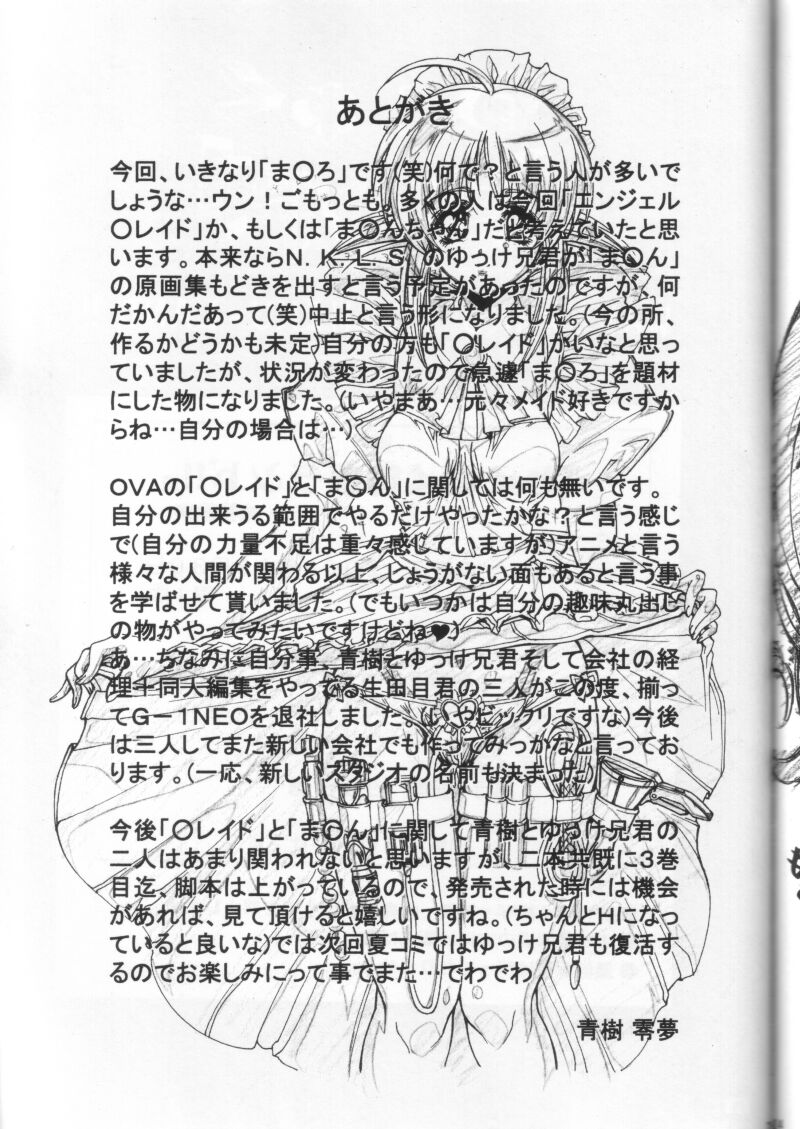 あとがき
今回、いきなり「ま〇ろ」です(笑)何で？と言う人が多いで
しょうな…ウン！ごもっとも。多くの人は今回「エンジェル
〇レイド」か、もしくは「ま〇んちゃん」だと考えていたと思
います。本来ならN．K．L．S．のゆっけ兄君が「ま〇ん」
の原画集もどきを出すと言う予定があったのですが、何
だかんだあって(笑)中止と言う形になりました。(今の所、
作るかどうかも未定)自分の方も「〇レイド」かいなと思っ
ていましたが、状況が変わったので急遽「ま〇ろ」を題材
にした物になりました。(いやまあ…元々メイド好きですか
らね…自分の場合は…)
OVAの「〇レイド」と「ま〇ん」に関しては何も無いです。
自分の出来うる範囲でやるだけやったかな？と言う感じ
で(自分の力量不足は重々感じていますが)アニメと言う
様々な人間が関わる以上、しょうがない面もあると言う事
を学ばせて貰いました。(でもいつかは自分の趣味丸出し
の物がやってみたいですけどね♥)
あ…ちなみに自分事、青樹とゆっけ兄君そして会社の経
理＋同人編集をやってる生田目君の三人がこの度、揃っ
てG－1NEOを退社しました。(いやビックリですな)今後
は三人してまた新しい会社でも作ってみっかなと言ってお
ります。(一応、新しいスタジオの名前も決まった)
今後「〇レイド」と「ま〇ん」に関して青樹とゆっけ兄君の
二人はあまり関われないと思いますが、二本共既に3巻
目迄、脚本は上がっているので、発売された時には機会
があれば、見て頂けると嬉しいですね。(ちゃんとHになっ
ていると良いな)では次回夏コミではゆっけ兄君も復活す
るのでお楽しみにって事でまた…でわでわ
青樹 零夢